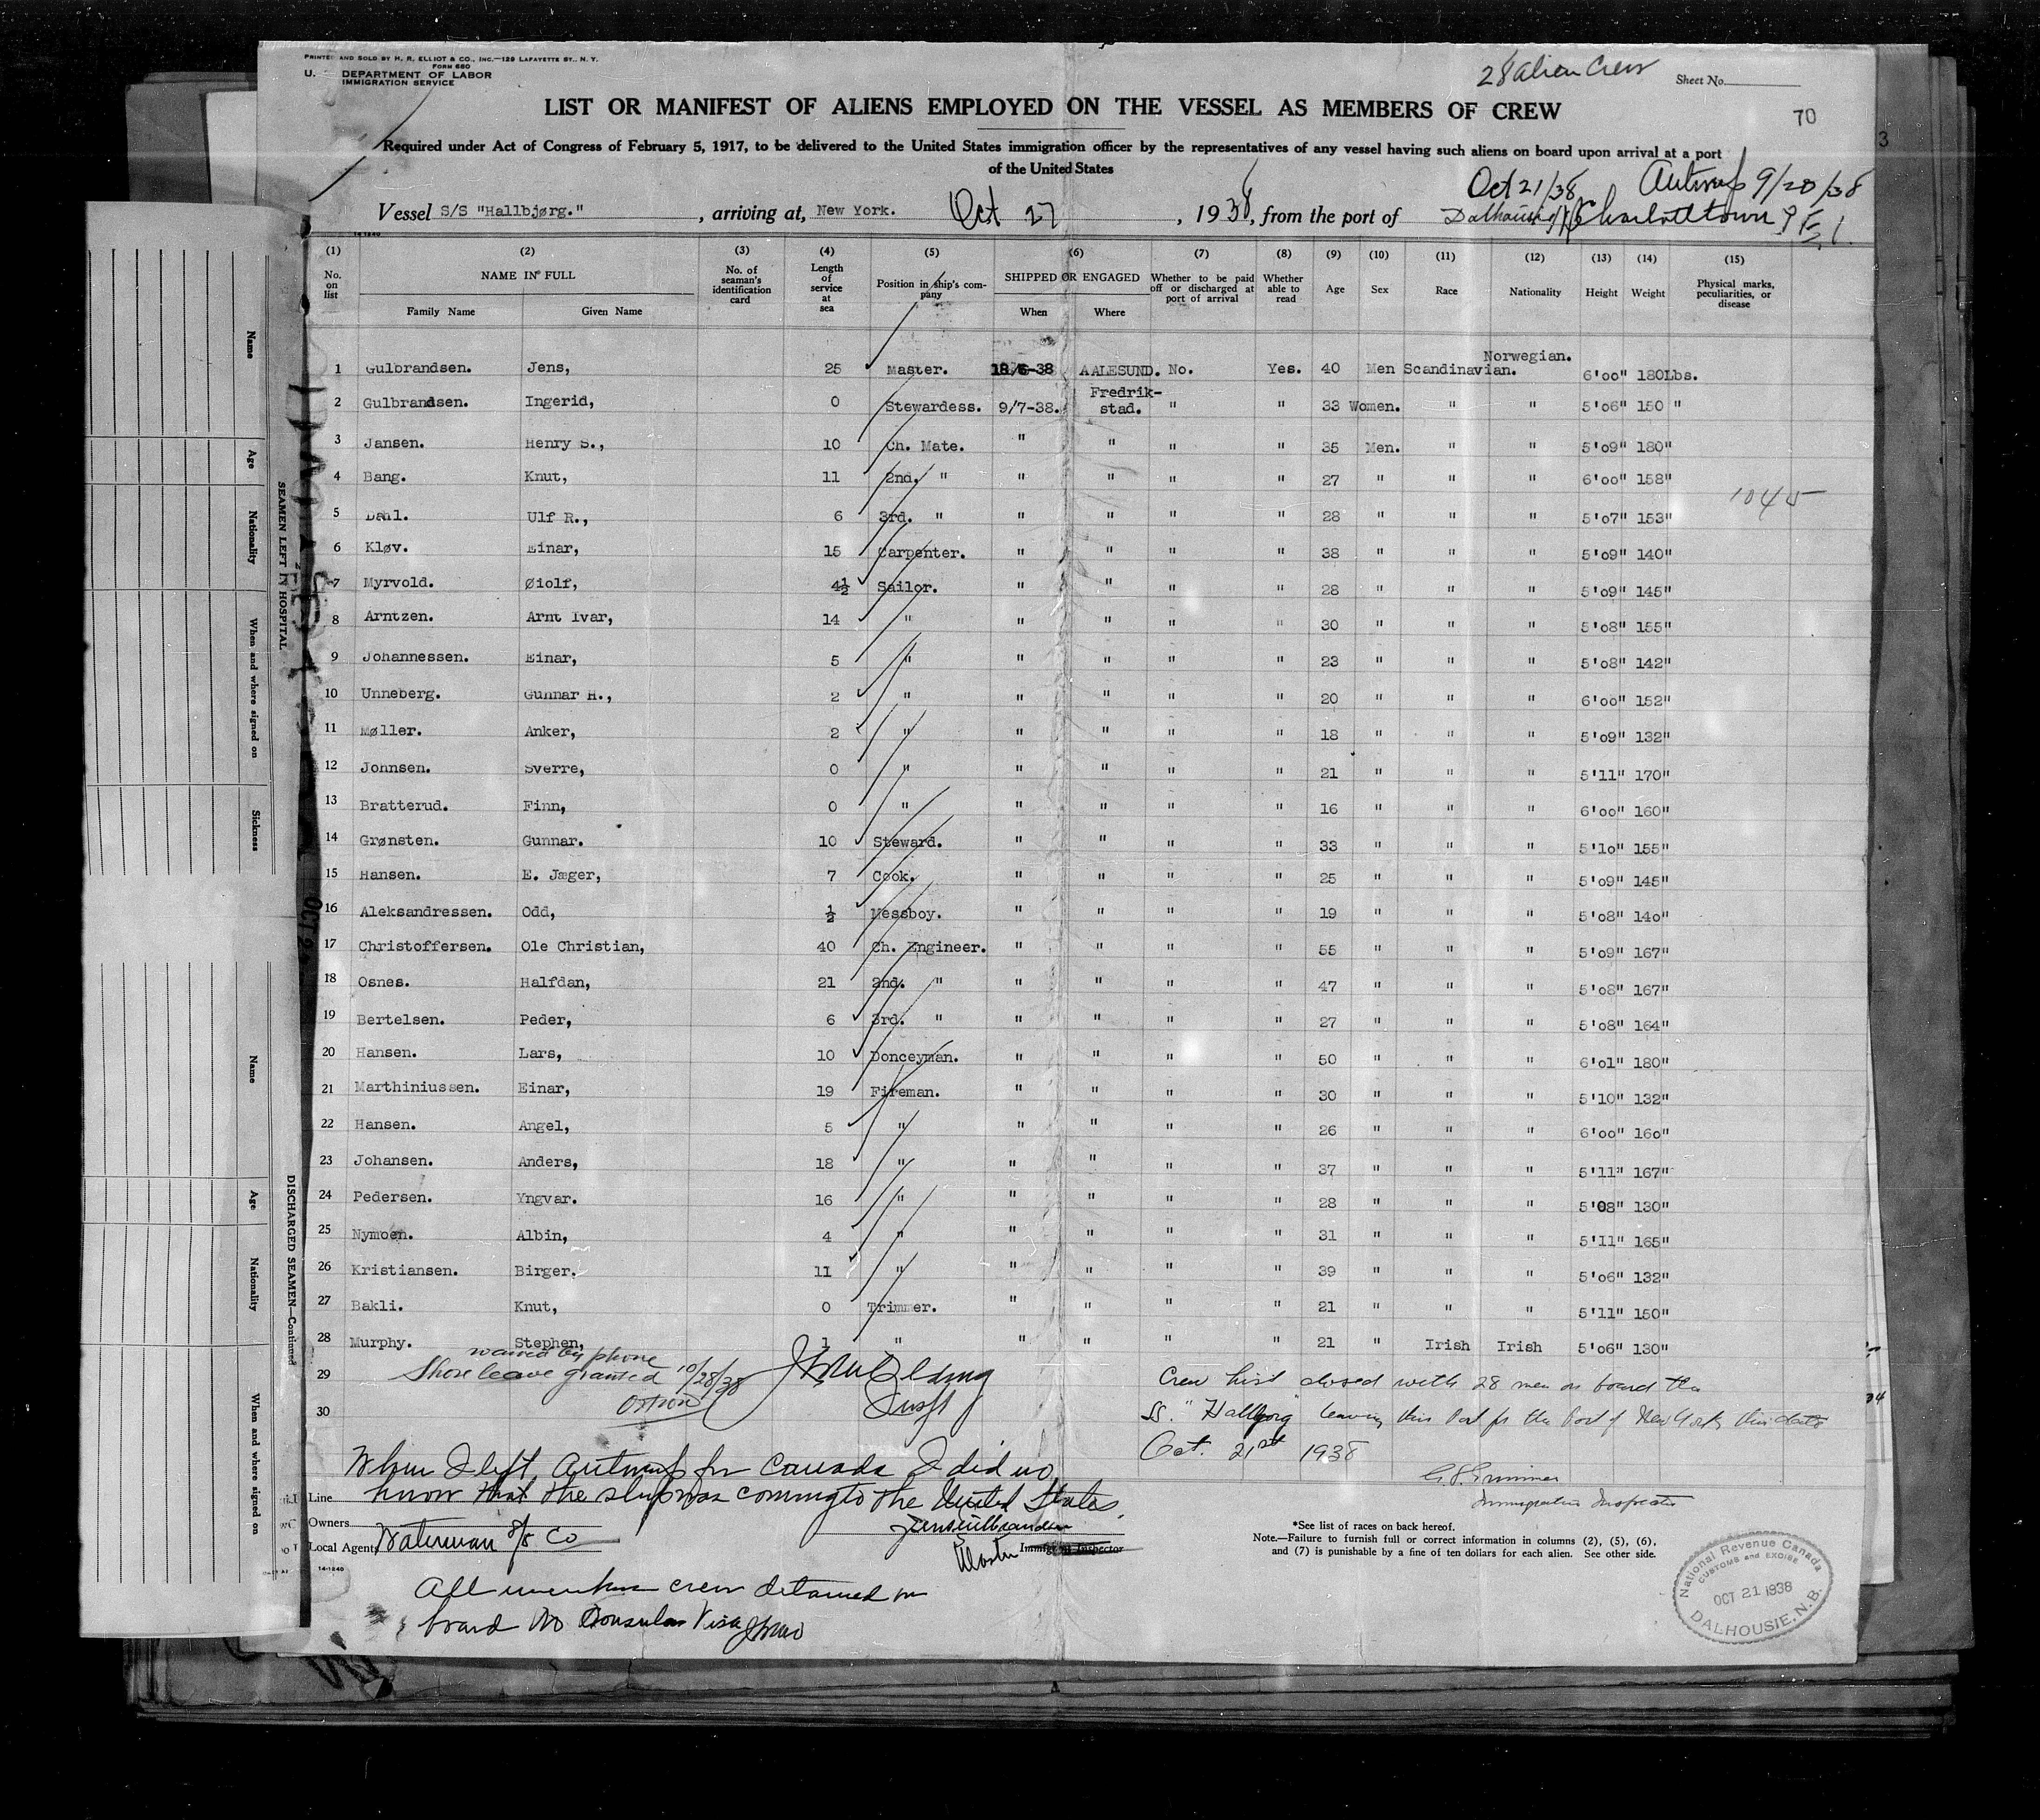 PRINTED AND SOLD BY H. R. ELLIOT & CO., INC.—129 LAFAYETTE ST., N. Y.
FORM 680
U. DEPARTMENT OF LABOR
IMMIGRATION SERVICE
28 alien Crew
Sheet No.
LIST OR MANIFEST OF ALIENS EMPLOYED ON THE VESSEL AS MEMBERS OF CREW
70
3
Required under Act of Congress of February 5, 1917, to be delivered to the United States immigration officer by the representatives of any vessel having such aliens on board upon arrival at a port
of the United States
Oct 21/38 Antwerp 9/20/38
Vessel S/S "Hallbjørg." , arriving at, New York. Oct 27 , 1938, from the port of Dalhousie Charlottetown P.E.I.
14-1240
(1) (2) (3) (4) (5) (6) (7) (8) (9) (10) (11) (12) (13) (14) (15)
No. on list NAME IN FULL Family Name Given Name No. of seaman's identification card Length of service at sea Position in ship's company SHIPPED OR ENGAGED When Where Whether to be paid off or discharged at port of arrival Whether able to read Age Sex Race Nationality Height Weight Physical marks, peculiarities, or disease
1 Gulbrandsen. Jens, 25 Master. 18/6-38 AALESUND. No. Yes. 40 Men Scandinavian. Norwegian. 6'00" 180Lbs.
2 Gulbrandsen. Ingerid, 0 Stewardess. 9/7-38. Fredrik-stad. " " 33 Women. " " 5'06" 150 "
3 Jansen. Henry S., 10 Ch. Mate. " " " " 35 Men. " " 5'09" 180"
4 Bang. Knut, 11 2nd. " " " " " 27 " " " 6'00" 158"
1045
5 Dahl. Ulf R., 6 3rd. " " " " " 28 " " " 5'07" 153"
6 Kløv. Einar, 15 Carpenter. " " " " 38 " " " 5'09" 140"
7 Myrvold. Øiolf, 4½ Sailor. " " " " 28 " " " 5'09" 145"
8 Arntzen. Arnt Ivar, 14 " " " " " 30 " " " 5'08" 155"
9 Johannessen. Einar, 5 " " " " " 23 " " " 5'08" 142"
10 Unneberg. Gunnar H., 2 " " " " " 20 " " " 6'00" 152"
11 Møller. Anker, 2 " " " " " 18 " " " 5'09" 132"
12 Johnsen. Sverre, 0 " " " " " 21 " " " 5'11" 170"
13 Bratterud. Finn, 0 " " " " " 16 " " " 6'00" 160"
14 Grønsten. Gunnar. 10 Steward. " " " " 33 " " " 5'10" 155"
15 Hansen. E. Jæger, 7 Cook. " " " " 25 " " " 5'09" 145"
16 Aleksandressen. Odd, ½ Messboy. " " " " 19 " " " 5'08" 140"
17 Christoffersen. Ole Christian, 40 Ch. Engineer. " " " " 55 " " " 5'09" 167"
18 Osnes. Halfdan, 21 2nd. " " " " " 47 " " " 5'08" 167"
19 Bertelsen. Peder, 6 3rd. " " " " " 27 " " " 5'08" 164"
20 Hansen. Lars, 10 Donceyman. " " " " 50 " " " 6'01" 180"
21 Marthiniussen. Einar, 19 Fireman. " " " " 30 " " " 5'10" 132"
22 Hansen. Angel, 5 " " " " " 26 " " " 6'00" 160"
23 Johansen. Anders, 18 " " " " " 37 " " " 5'11" 167"
24 Pedersen. Yngvar. 16 " " " " " 28 " " " 5'08" 130"
25 Nymoen. Albin, 4 " " " " " 31 " " " 5'11" 165"
26 Kristiansen. Birger. 11 " " " " " 39 " " " 5'06" 132"
27 Bakli. Knut, 0 Trimmer. " " " " 21 " " " 5'11" 150"
28 Murphy. Stephen, 1 " " " " " 21 " Irish Irish 5'06" 130"
waived by phone
29 Shore leave granted 10/28/38
30
Insp
Crew list closed with 28 men on board the
SS. "Hallbjorg" leaving this Port for the Port of New York this date
Oct. 21st 1938
Immigration Inspector
When I left Antwerp for Canada I did no
know that the ship was coming to the United States.
Line
Owners
Jens Gulbrandsen
Master Immigrant Inspector
Local Agents Waterman S/S Co
14-1240
All members crew detained on
board No Consular Visa
*See list of races on back hereof.
Note.—Failure to furnish full or correct information in columns (2), (5), (6),
and (7) is punishable by a fine of ten dollars for each alien. See other side.
National Revenue Canada
CUSTOMS and EXCISE
OCT 21 1938
DALHOUSIE, N.B.
SEAMEN LEFT IN HOSPITAL
Name
Age
Nationality
When and where signed on
Sickness
DISCHARGED SEAMEN—Continued
Name
Age
Nationality
When and where signed on